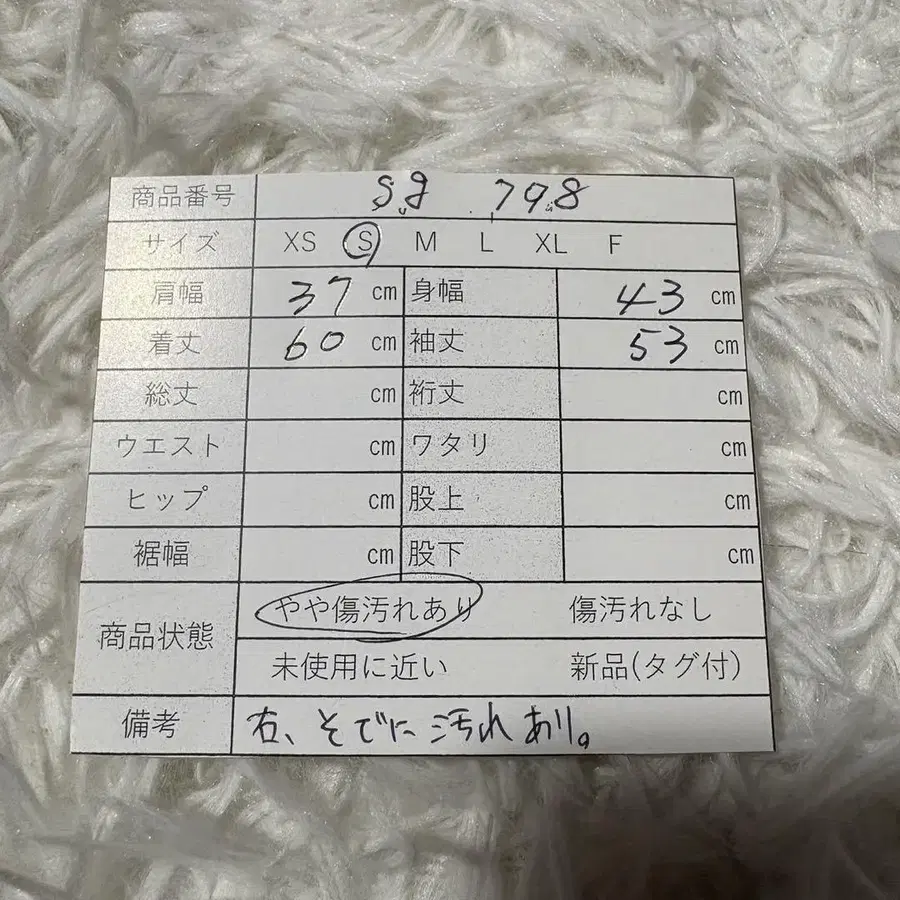 商品番号 sg 798
サイズ XS S M L XL F
肩幅 37 cm 身幅 43 cm
着丈 60 cm 袖丈 53 cm
総丈 cm 裄丈 cm
ウエスト cm ワタリ cm
ヒップ cm 股上 cm
裾幅 cm 股下 cm
商品状態 やや傷汚れあり 傷汚れなし
未使用に近い 新品(タグ付)
備考 右、そでに汚れあり。